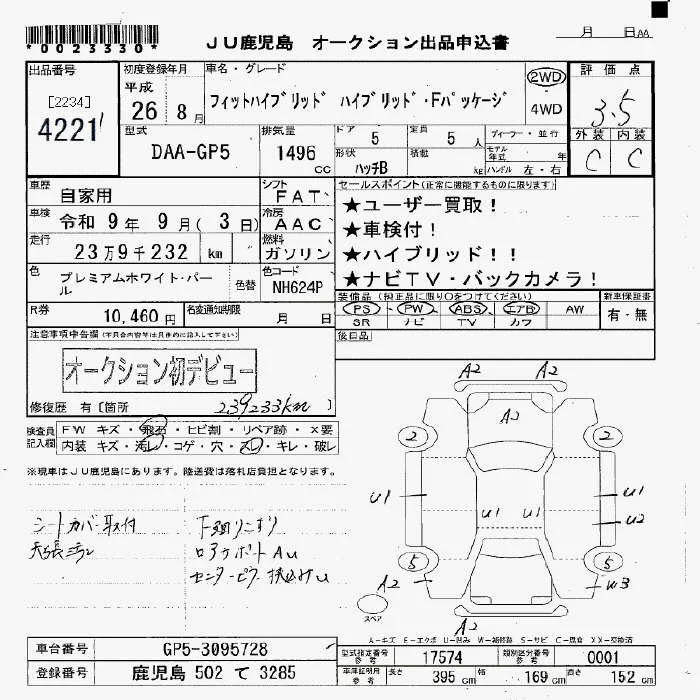 *0023330*
JU鹿児島 オークション出品申込書
月 日 AA
出品番号
[2234]
4221
初度登録年月
平成
26 8月
車名・グレード
フィットハイブリッド ハイブリッド・Fパッケージ
2WD
4WD
評価点
3.5
外装 内装
C C
型式
DAA-GP5
排気量
1496
cc
ドア
5
定員
5人
形状
ハッチB
積載
kg
ディーラー・並行
モデル年式 年
ハンドル 左・右
車歴
自家用
シフト
FAT
車検
令和 9年 9月( 3日)
冷房
AAC
走行
23万9千232 km
燃料
ガソリン
色
プレミアムホワイト・パール
色替
色コード
NH624P
R券
10,460円
名変通知期限
月 日
セールスポイント(正常に機能するものに限ります)
★ユーザー買取!
★車検付!
★ハイブリッド!!
★ナビTV・バックカメラ!
装備品(純正品に限り○をつけてください)
PS PW ABS エアB AW
SR ナビ TV カワ
新車保証書
有・無
後日品
注意事項申告欄(不具合内容等は具体的に記入して下さい)
オークション初デビュー
修復歴 有〔箇所 〕
239233km
検査員記入欄
FW キズ・飛石・ヒビ割・リペア跡・×要
内装 キズ・汚レ・コゲ・穴・スレ・キレ・破レ
※現車はJU鹿児島にあります。陸送費は落札店負担となります。
シートカバー取付
下廻りこすり
A2
A2
A2
2
2
U1
U1
U1
U1
U2
5
5
A2
W3
A2
スペア
A-キズ E-エクボ U-凹み W-補修跡 S-サビ C-腐食 XX-交換済
車台番号
GP5-3095728
登録番号
鹿児島 502 て 3285
型式指定番号
参考
17574
類別区分番号
参考
0001
車庫証明用
参考
長さ
395 cm
幅
169 cm
高さ
152 cm